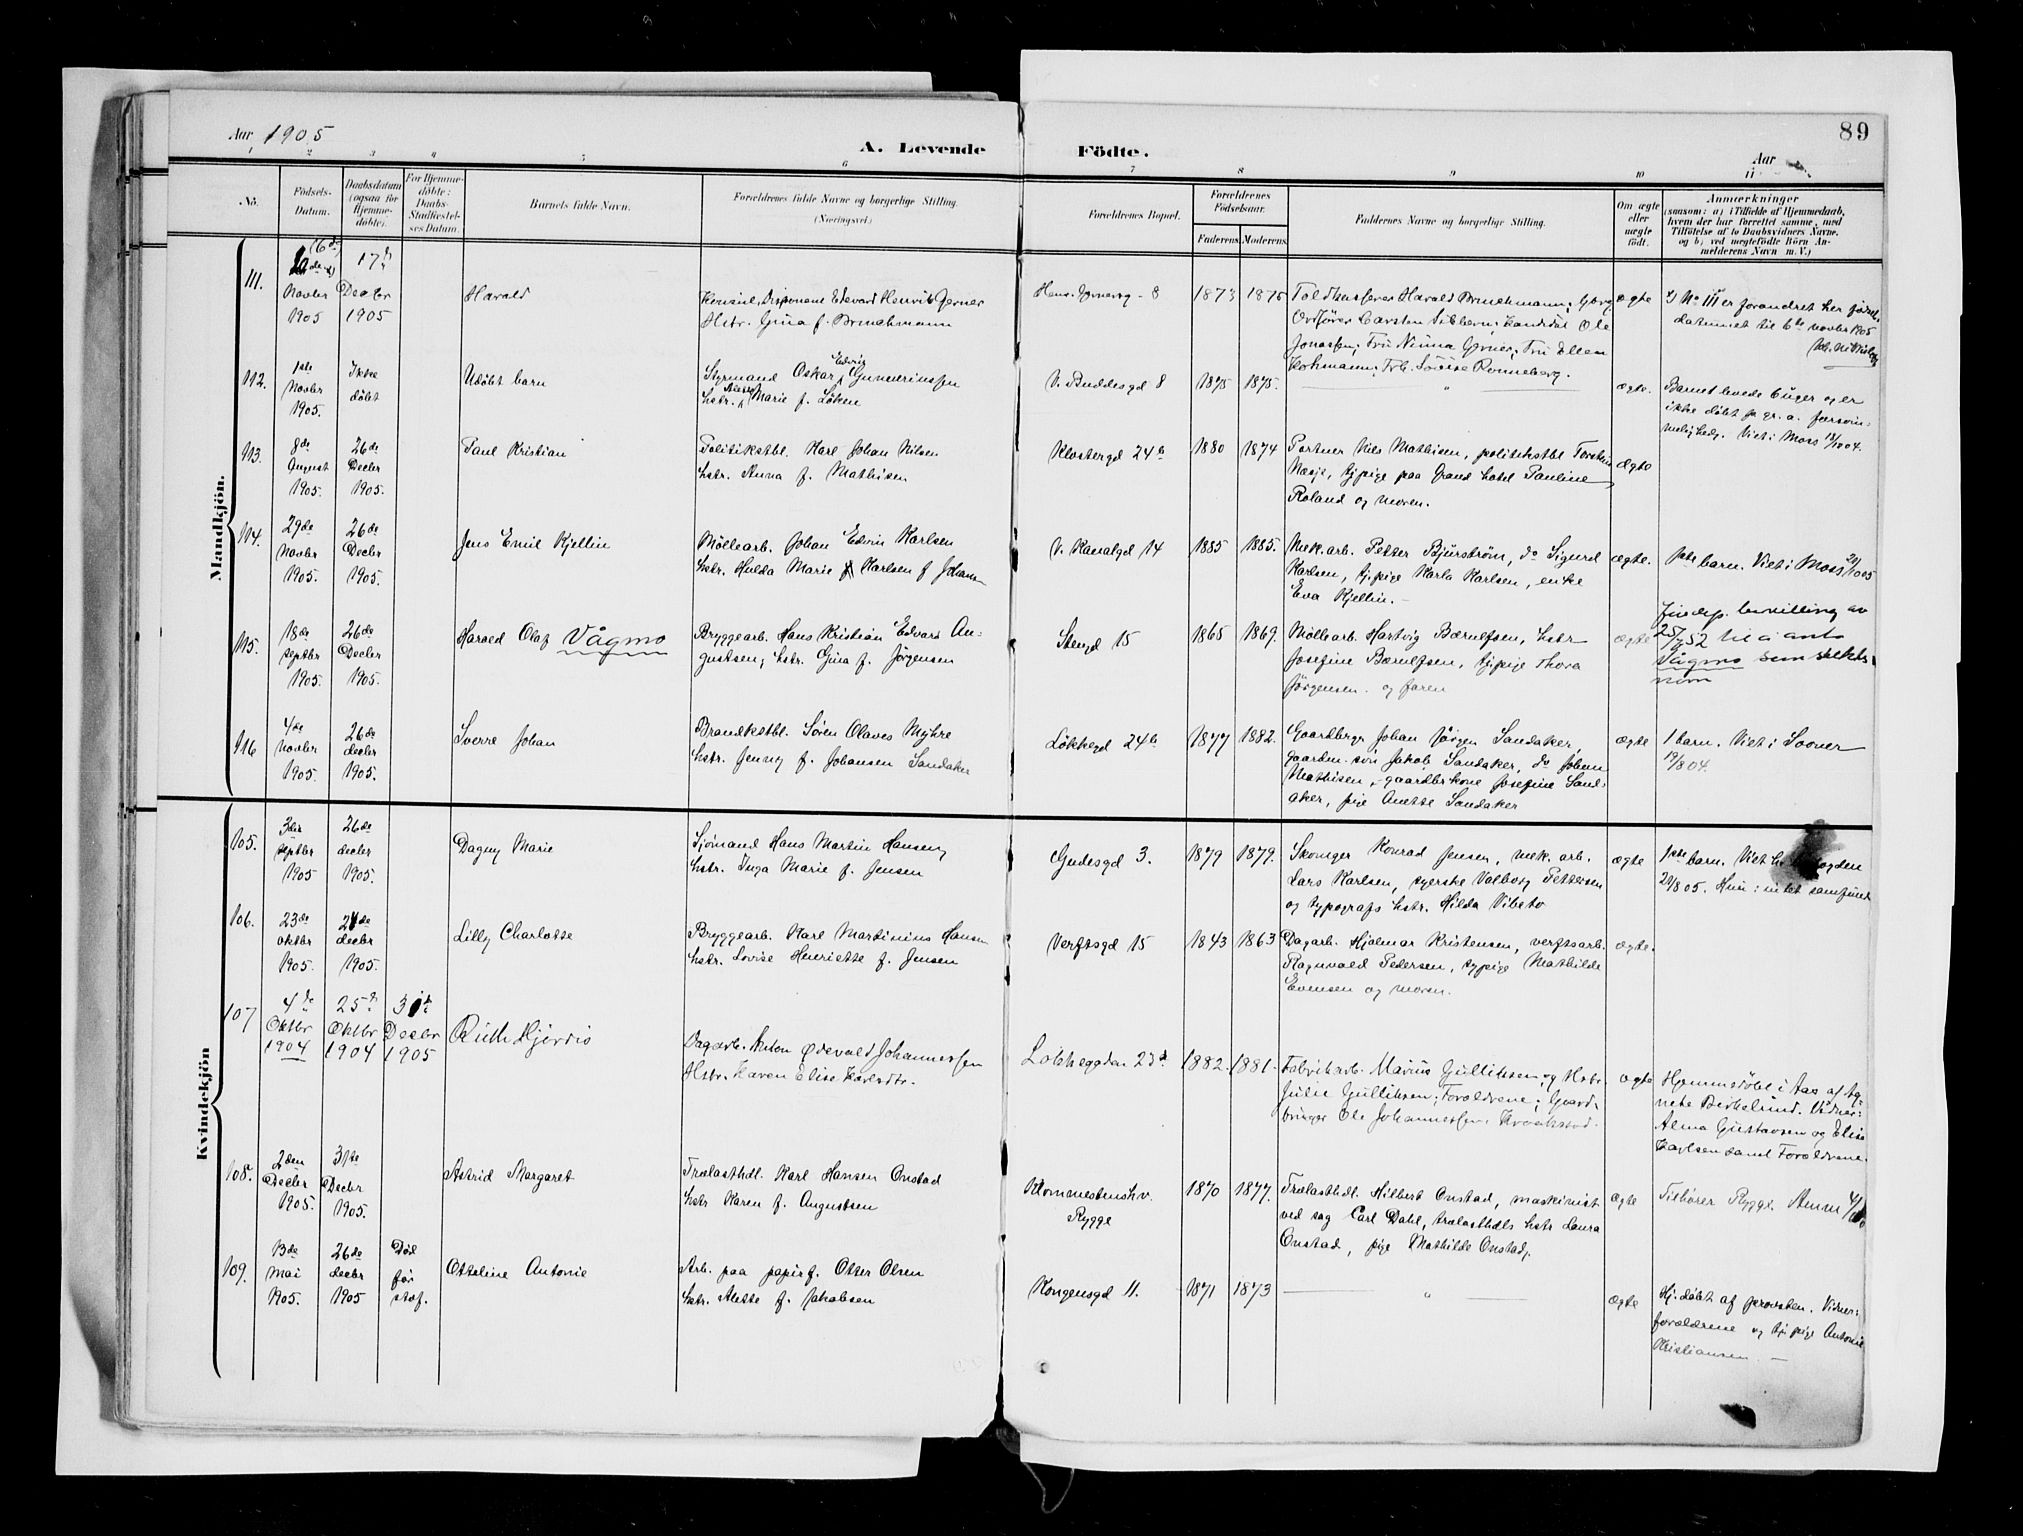 Aar 1905
A. Levende Födte.
89
Aar
1 2 3 4 5 6 7 8 9 10 11
No.
Födsels-Datum.
Daabsdatum (ogsaa for Hjemmedöbte).
For Hjemmedöbte: Daabs-Stadfestelses Datum.
Barnets fulde Navn.
Forældrenes fulde Navne og borgerlige Stilling. (Næringsvei.)
Forældrenes Bopæl.
Forældrenes Födselsaar.
Faderens. Moderens.
Faddernes Navne og borgerlige Stilling.
Om ægte eller uægte födt.
Anmærkninger
(saasom: a) i Tilfælde af Hjemmedaab, hvem der har forrettet samme, med Tilföielse af to Daabsvidners Navne, og b) ved uægtefödte Börn Anmelderens Navn m. V.)
Mandkjön.
111.
(6 de)
Novbr
1905
17 d
Decbr
1905
Harald
Konsul, Disponent Edevard Henrik Gerner
Hstr. Gina f. Brinchmann
8
1873
1875
Toldkasserer Harald Brinchmann;
Ordfører Carsten Sibbern; Kandidat Ole
Jonassen; Fru Ninna Gerner; Fru Ellen
Kohmann; Frk. Louise Rønneberg.
ægte
No 111 er forandret her fødsels
datumet til 6te novbr 1905
112.
1ste
Novbr
1905.
Ikke
døbt
Udøbt barn
Styrmand Oskar Edvin Gundersen
hstr. Marie f. Løken
V. Buddesgd 8
1875
1875.
"
ægte.
Barnet levede 6 uger og er
ikke døbt p. gr. a. forsøm-
melighed. Viet i Moss 18/10 04.
113.
8de
August
1905.
26de
Decbr
1905.
Paul Kristian
Politikstbl. Karl Johan Nilsen
hstr. Anna f. Mathisen
Klostergd 24b
1880
1874
Portner Nils Mathisen, politikstbl
tjpige paa Grand hotel Pauline
Roland og moren.
ægte
114.
29de
Novbr
1905.
26de
Decbr
1905.
Jens Emil Kjellin
Møllearb. Johan Edvin Karlsen
hstr. Hulda Marie Karlsen f Johans
V. Kanalgd 14
1885
1885.
Mek. arb. Petter Bjurstrøm, do Sigurd
Karlsen, tjpige Karla Karlsen, enke
Eva Kjellin. -
ægte.
1ste barn. Viet i Moss 20/10 05
115.
18de
septbr
1905.
26de
Decbr
1905.
Harald Olaf Vågmo
Bryggearb. Hans Kristian Edvard Au-
gustsen, hstr. Gina f. Jørgensen
Stengd 15
1865
1869.
Møllearb. Hartvig Børulfsen, hstr
Josefine Børulfsen, tjpige Thora
Jørgensen. og faren
ægte
Jusdep. bevilling av
25/7 52 til å anta
Vågmo som slekts-
navn
116
4de
Novbr
1905.
26de
decbr
1905.
Sverre Johan
Brandkstbl. Søren Olaves Myhre
hstr. Jenny f. Johansen Sandaker
Løkkegd 24b
1877
1882.
Gaardbrgr Johan Jørgen Sandaker,
gaardm. søn Jakob Sandaker, do Johan
Mathisen, gaardbrkone Josefine Sand-
aker, pige Anette Sandaker
ægte
1 barn. Viet i Sooner
19/8 04.
Kvindekjön
105.
3die
septbr
1905
26de
decbr
1905.
Dagny Marie
Sjømand Hans Martin Hansen,
hstr. Inga Marie f. Jensen
Gudesgd 3.
1879
1879.
Skomgr Konrad Jensen, mek. arb.
Lars Karlsen, syerske Valborg Pettersen
og typografs hstr. Hilda Vibeto
ægte
1ste barn. Viet
2/8 05. Hun: intet samfund
106.
23de
oktbr
1905.
26de
decbr
1905.
Lilly Charlotte
Bryggearb. Karl Martinius Hansen
hstr. Lovise Henriette f. Jensen
Verftsgd 15
1843
1863
Dagarb. Hjalmar Kristensen, verftsarb.
Ragnvald Pedersen, tjpige Mathilde
Evensen og moren.
ægte.
107
4de
Oktbr
1904
25d
Oktbr
1904
31d
Decbr
1905
Ruth Hjørdis
Dagarb. Anton Edevald Johannessen
Hstr. Karen Elise Karlsdtr.
Løkkeggden 23
1882.
1881.
Fabrikarb. Marius Gulliksen, og Hstr.
Julie Gulliksen; Forældrene; Gaard-
bruger Ole Johannessen, Kraakstad.
ægte
Hjemmedøbt i Aas af Ag-
nete Birkelund. Vidner:
Alma Gustavsen og Elise
Karlsen samt Forældrene.
108.
2den
Decbr
1905.
31te
Decbr
1905.
Astrid Margaret
Trælasthdl. Karl Hansen Onstad
hstr Karen f. Augustsen
Rygge
1870
1877.
Trælasthdl. Hilbert Onstad, maskinist
ved sag Carl Dahl, trælasthdls hstr Laura
Onstad, pige Mathilde Onstad,
ægte
Tilhører Rygge. Anm
109.
13de
Mai
1905.
26de
decbr
1905
Død
før
staf.
Otteline Antonie
Arb. paa papirf. Otter Olsen
hstr. Alette f. Jakobsen
Kongensgd 11.
1871
1873
"
ægte
Hj. døbt af provsten. Vidner:
forældrene og tj. pige Antonie
Kristiansen. -